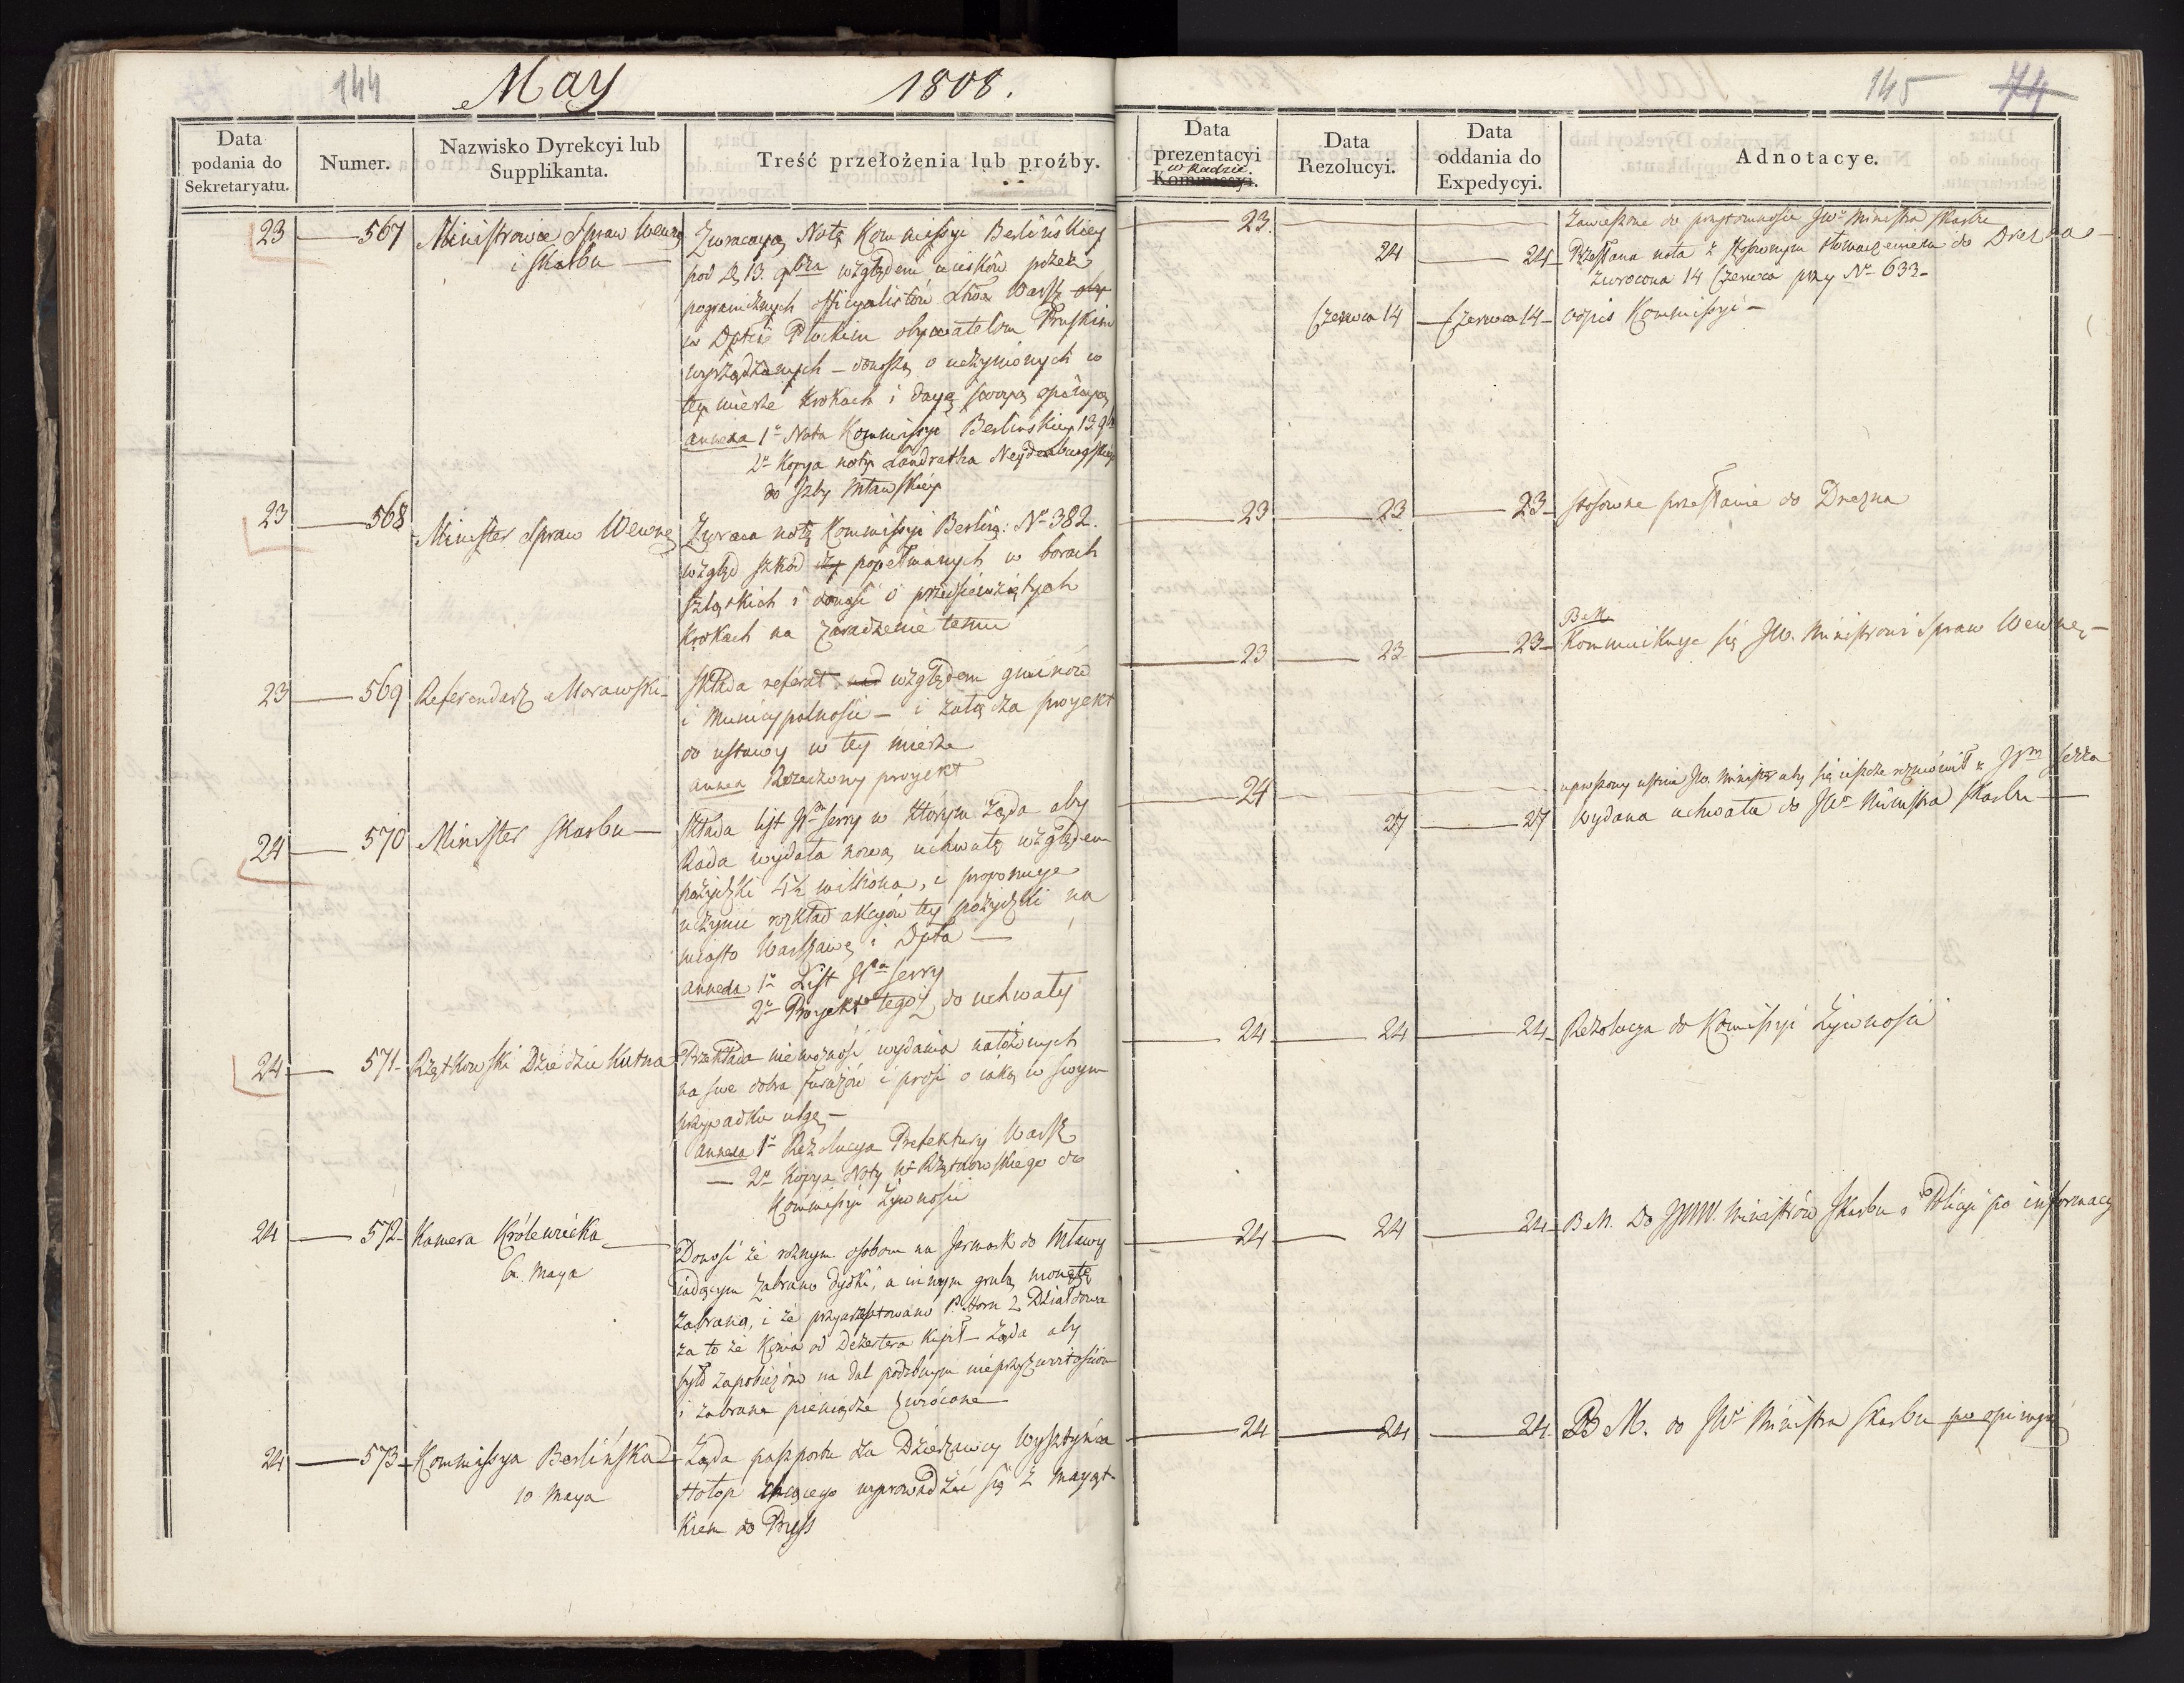 144 May 1808.
Data podania do Sekretaryatu.
Numer.
Nazwisko Dyrekcyi lub Supplikanta.
Treść przełożenia lub proźby.
23 567 Ministrowie Spraw Wewnę
i Skarbu
Zwracaią Notę Kommissyi Berlińskiey
pod D. 13. 9bra względem ucisków przez
pogranicznych Officyalistów Xtwa Warsz.
w Dptcie Płockim obywatelom Pruskim
wyrządzanych – donoszą o uczynionych w
tey mierze krokach i daią swoią opinią
annexa 1o Nota Kommissyi Berlinskiey 13. 9b
2o Kopya noty Landratha Neydenburgskiey
do Izby Mławskiey
23 568 Minister Spraw Wewnę
Zwraca notę Kommissyi Berliń: No 382.
względ szkód popełnianych w borach
szląskich i donosi o przedsięwziętych
krokach na zaradzenie temu
23 569 Referendarz Morawski
Składa referat względem gminów
i Municypalności – i załącza proyekt
do ustawy w tey mierze
annex Rzeczony proyekt
24 570 Minister Skarbu
Składa list JPa Serry w którym żąda aby
Rada wydała nową uchwałę względem
pożyczki 4½ miliona, i proponuie
uczynić rozkład akcyów tey pożyczki na
miasto Warszawę i Dpta
annexa 1o List JPa Serry
2o Proyekt tegoż do uchwały
24 571 Rzętkowski Dziedzic Kutna
Przekłada niemożność wydania nałożonych
na swe dobra furażów i prosi o iaką w swym
przypadku ulgę –
annexa 1o Rezolucya Prefektury Warsz
2o Kopya Noty Wo Rzętkowskiego do
Kommissyi Żywności
24 572 Kamera Królewiecka
6. Maya
Donosi że rożnym osobom na Jarmark do Mławy
iadącym zabrano dydki, a innym grubą monetę
zabraną, i że przyaresztowano P. Horn z Działdowa
za to że konia od Dezertera kupił – żąda aby
było zapobieżono na dal podobnym nieprzyzwoitościom
i zabrane pieniądze zwrócone
24 573 Kommissya Berlińska
10 Maya
Żąda paszportu dla Dzierżawcy Wysztyńca
Hotop chcącego wyprowadzić się z maiąt-
kiem do Pruss
145 74
Data prezentacyi w Radzie. Kommissyi.
Data Rezolucyi.
Data oddania do Expedycyi.
Adnotacye.
23. Zawieszone do przytomności JWo Ministra Skarbu
24 24 Przesłana nota z stosownym tłomaczeniem do Drezna
zwrocona 14 Czerwca przy No 633.
Czerwca 14 Czerwca 14 odpis Kommissyi
23 23 23 stosowne przesłanie do Drezna
23 23 23 B.M.
Kommunikuie się JW. Ministrowi Spraw Wewnę
24 uproszony ustnie JW. Minister aby się ieszcze rozmówił z JPm Serra
27 27 Wydana uchwała do JWo Ministra Skarbu
24 24 24 Rezolucya do Komissyi Żywności
24 24 24 B.M. Do JJWW. Ministrów Skarbu i Policyi po informacyą
24 24 24. B.M. do JWo Ministra Skarbu po opinyą